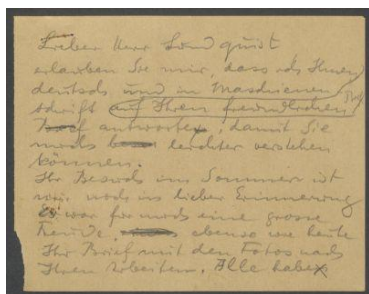 Lieber Herr Lindquist
erlauben Sie mir, dass ich Ihnen
deutsch und in Maschinen
schrift auf Ihren freundlichen Brief
antworte, damit Sie
mich leichter verstehen
können.
Ihr Besuch im Sommer ist
mir noch in lieber Erinnerung
Es war für mich eine grosse
Freude, ebenso wie heute
Ihr Brief mit den Fotos nach
Ihren Arbeiten. Alle habe